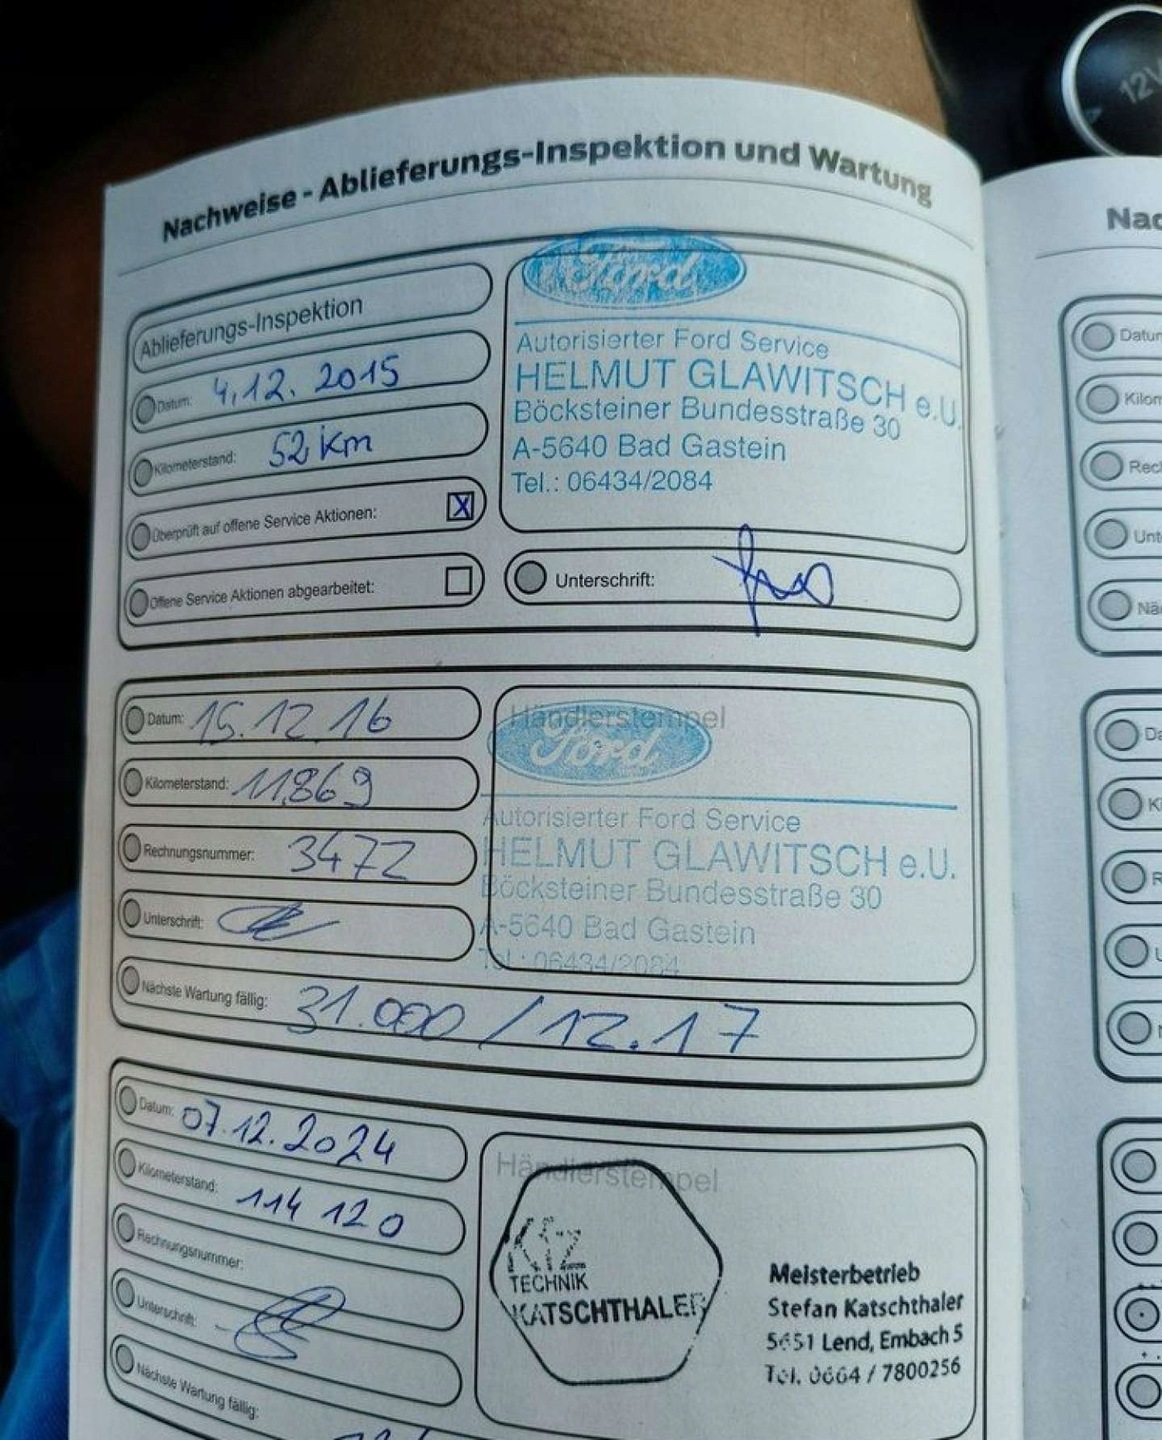 12V
Nachweise - Ablieferungs-Inspektion und Wartung
Ablieferungs-Inspektion
Datum: 4.12. 2015
Kilometerstand: 52 km
Überprüft auf offene Service Aktionen: X
Offene Service Aktionen abgearbeitet:
Ford
Autorisierter Ford Service
HELMUT GLAWITSCH e.U.
Böcksteiner Bundesstraße 30
A-5640 Bad Gastein
Tel.: 06434/2084
Unterschrift:
Datum: 15.12.16
Kilometerstand: 11869
Rechnungsnummer: 3472
Unterschrift:
Nächste Wartung fällig: 31.000 / 12.17
Händlerstempel
Ford
Autorisierter Ford Service
HELMUT GLAWITSCH e.U.
Böcksteiner Bundesstraße 30
A-5640 Bad Gastein
Tel.: 06434/2084
Datum: 07.12.2024
Kilometerstand: 114 120
Rechnungsnummer:
Unterschrift:
Nächste Wartung fällig:
Händlerstempel
Kfz
TECHNIK
KATSCHTHALER
Meisterbetrieb
Stefan Katschthaler
5651 Lend, Embach 5
Tel. 0664 / 7800256